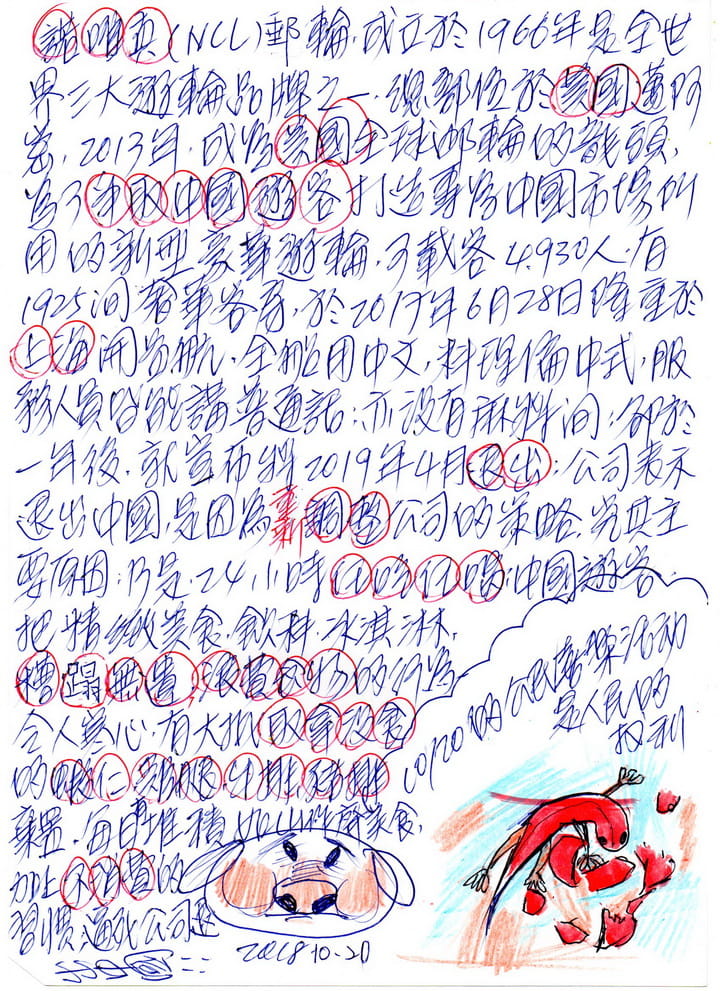 諾唯真(NCL)郵輪,成立於1966年是全世
界三大遊輪品牌之一,總部位於美國邁阿
密,2013年,成為美國全球郵輪的龍頭,
為了爭取中國遊客打造專為中國市場所
用的新型豪華遊輪,可載客4.930人,有
1925间豪華客房,於2017年6月28日隆重於
上海開首航,全船用中文,料理偏中式,服
務人員皆能講普通話;亦設有麻將间;卻於
一年後,就宣布料2019年4月退出;公司表示
退出中國,是因為重新調整公司的策略,究其主
要原因;乃是,24小時任吃任喝,中國遊客
把精緻美食,飲料,冰淇淋,
糟蹋無遺,浪費食物的行為
令人寒心,有大批取拿没食
的蝦仁,雞腿,牛排,豬排
棄置,每日堆積如山 美食,
加上不消費的
習慣,逼死公司
公民 活動
是人民的
权利
2018-10-20